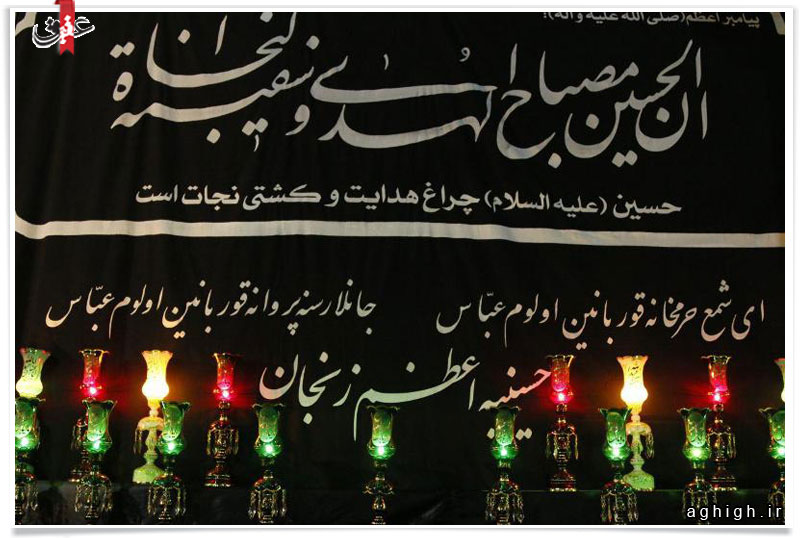 عقیق
پیامبر اعظم(صلی الله علیه و آله):
ان الحسین مصباح الهدی و سفینة النجاة
حسین (علیه السلام) چراغ هدایت و کشتی نجات است
ای شمع حرمخانه قوربانین اولوم عبّاس
جانلار سنه پروانه قوربانین اولوم عبّاس
حسینیه اعظم زنجان
aghigh.ir